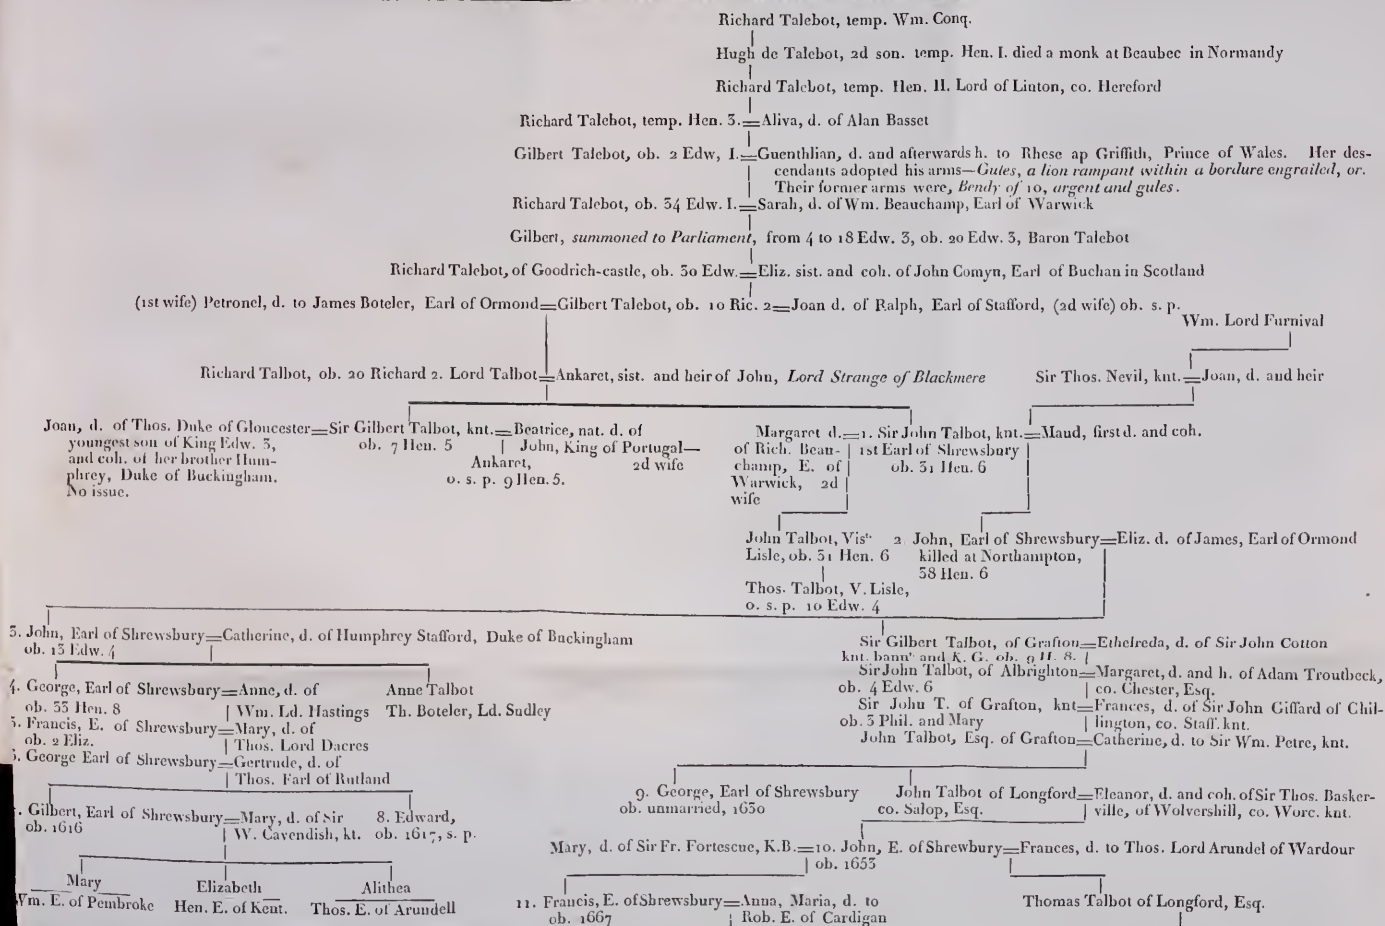 Richard Talebot, temp. Wm. Conq.
Hugh de Talebot, 2d son. temp. Hen. I. died a monk at Beaubec in Normandy
Richard Talebot, temp. Hen. II. Lord of Linton, co. Hereford
Richard Talebot, temp. Hen. 3.=Aliva, d. of Alan Basset
Gilbert Talebot, ob. 2 Edw, I.=Guenthlian, d. and afterwards h. to Rhese ap Griffith, Prince of Wales. Her des-
cendants adopted his arms—Gules, a lion rampant within a bordure engrailed, or.
Their former arms were, Bendy of 10, argent and gules.
Richard Talebot, ob. 34 Edw. I.=Sarah, d. of Wm. Beauchamp, Earl of Warwick
Gilbert, summoned to Parliament, from 4 to 18 Edw. 3, ob. 20 Edw. 3, Baron Talebot
Richard Talebot, of Goodrich-castle, ob. 30 Edw.=Eliz. sist. and coh. of John Comyn, Earl of Buchan in Scotland
(1st wife) Petronel, d. to James Boteler, Earl of Ormond=Gilbert Talebot, ob. 10 Ric. 2=Joan d. of Ralph, Earl of Stafford, (2d wife) ob. s. p.
Wm. Lord Furnival
Richard Talbot, ob. 20 Richard 2. Lord Talbot=Ankaret, sist. and heir of John, Lord Strange of Blackmere
Sir Thos. Nevil, knt.=Joan, d. and heir
Joan, d. of Thos. Duke of Gloucester=Sir Gilbert Talbot, knt.=Beatrice, nat. d. of
youngest son of King Edw. 3,
and coh. of her brother Hum-
phrey, Duke of Buckingham.
No issue.
ob. 7 Hen. 5
John, King of Portugal—
2d wife
Ankaret,
o. s. p. 9 Hen. 5.
Margaret d.=1. Sir John Talbot, knt.=Maud, first d. and coh.
of Rich. Beau-
champ, E. of
Warwick, 2d
wife
1st Earl of Shrewsbury
ob. 31 Hen. 6
John Talbot, Vist.
Lisle, ob. 31 Hen. 6
Thos. Talbot, V. Lisle,
o. s. p. 10 Edw. 4
2 John, Earl of Shrewsbury=Eliz. d. of James, Earl of Ormond
killed at Northampton,
38 Hen. 6
3. John, Earl of Shrewsbury=Catherine, d. of Humphrey Stafford, Duke of Buckingham
ob. 13 Edw. 4
4. George, Earl of Shrewsbury=Anne, d. of
ob. 33 Hen. 8
Wm. Ld. Hastings
Anne Talbot
Th. Boteler, Ld. Sudley
5. Francis, E. of Shrewsbury=Mary, d. of
ob. 2 Eliz.
Thos. Lord Dacres
George Earl of Shrewsbury=Gertrude, d. of
Thos. Earl of Rutland
Gilbert, Earl of Shrewsbury=Mary, d. of Sir
ob. 1616
W. Cavendish, kt.
8. Edward,
ob. 1617, s. p.
Mary
Wm. E. of Pembroke
Elizabeth
Hen. E. of Kent.
Alithea
Thos. E. of Arundell
Sir Gilbert Talbot, of Grafton=Ethelreda, d. of Sir John Cotton
knt. bannt. and K. G. ob. 9 H. 8.
Sir John Talbot, of Albrighton=Margaret, d. and h. of Adam Troutbeck,
ob. 4 Edw. 6
co. Chester, Esq.
Sir John T. of Grafton, knt=Frances, d. of Sir John Giffard of Chil-
ob. 3 Phil. and Mary
lington, co. Staff. knt.
John Talbot, Esq. of Grafton=Catherine, d. to Sir Wm. Petre, knt.
9. George, Earl of Shrewsbury
ob. unmarried, 1630
John Talbot of Longford=Eleanor, d. and coh. of Sir Thos. Basker-
co. Salop, Esq.
ville, of Wolvershill, co. Worc. knt.
Mary, d. of Sir Fr. Fortescue, K.B.=10. John, E. of Shrewbury=Frances, d. to Thos. Lord Arundel of Wardour
ob. 1653
11. Francis, E. of Shrewsbury=Anna, Maria, d. to
ob. 1667
Rob. E. of Cardigan
Thomas Talbot of Longford, Esq.